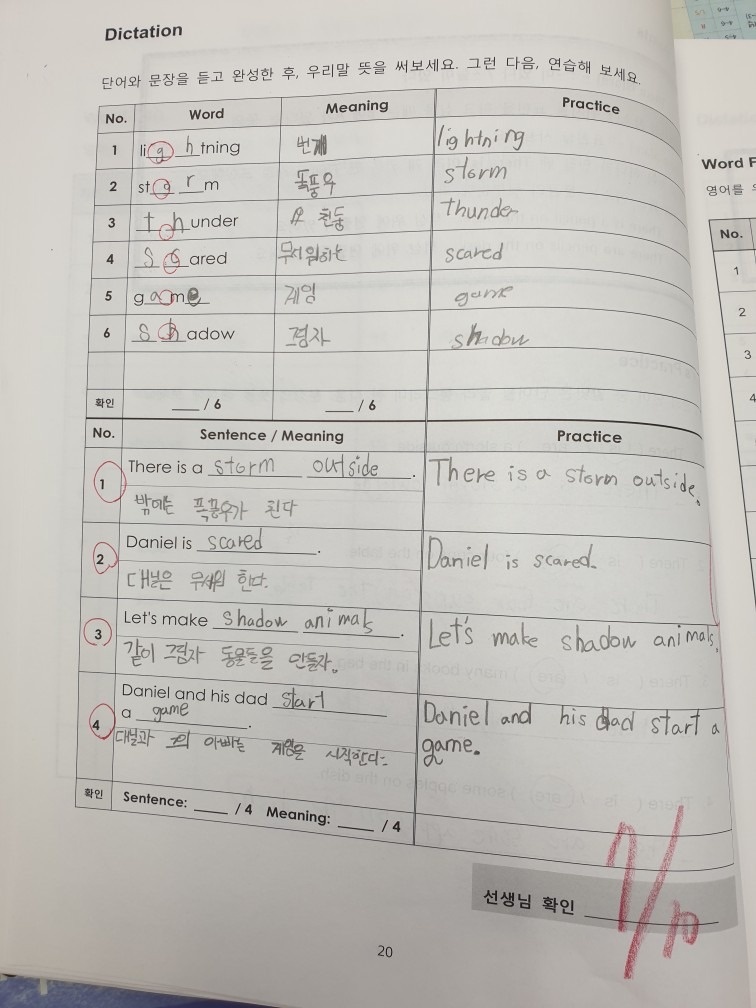 Dictation
단어와 문장을 듣고 완성한 후, 우리말 뜻을 써보세요. 그런 다음, 연습해 보세요.
No. Word Meaning Practice
1 lightning 번개 lightning
2 storm 폭풍우 storm
3 thunder 천둥 thunder
4 scared 무서워하는 scared
5 game 게임 game
6 shadow 그림자 shadow
확인 ___ / 6 ___ / 6
No. Sentence / Meaning Practice
1 There is a storm outside. There is a storm outside.
밖에는 폭풍우가 친다
2 Daniel is scared. Daniel is scared.
대니은 무서워 한다.
3 Let's make shadow animals. Let's make shadow animals.
같이 그림자 동물들을 만들자.
4 Daniel and his dad start Daniel and his dad start a
a game. game.
아빠는 게임을 시작한다.
확인 Sentence: ___ / 4 Meaning: ___ / 4
선생님 확인
20
Word F
영어를
No.
1
2
3
4